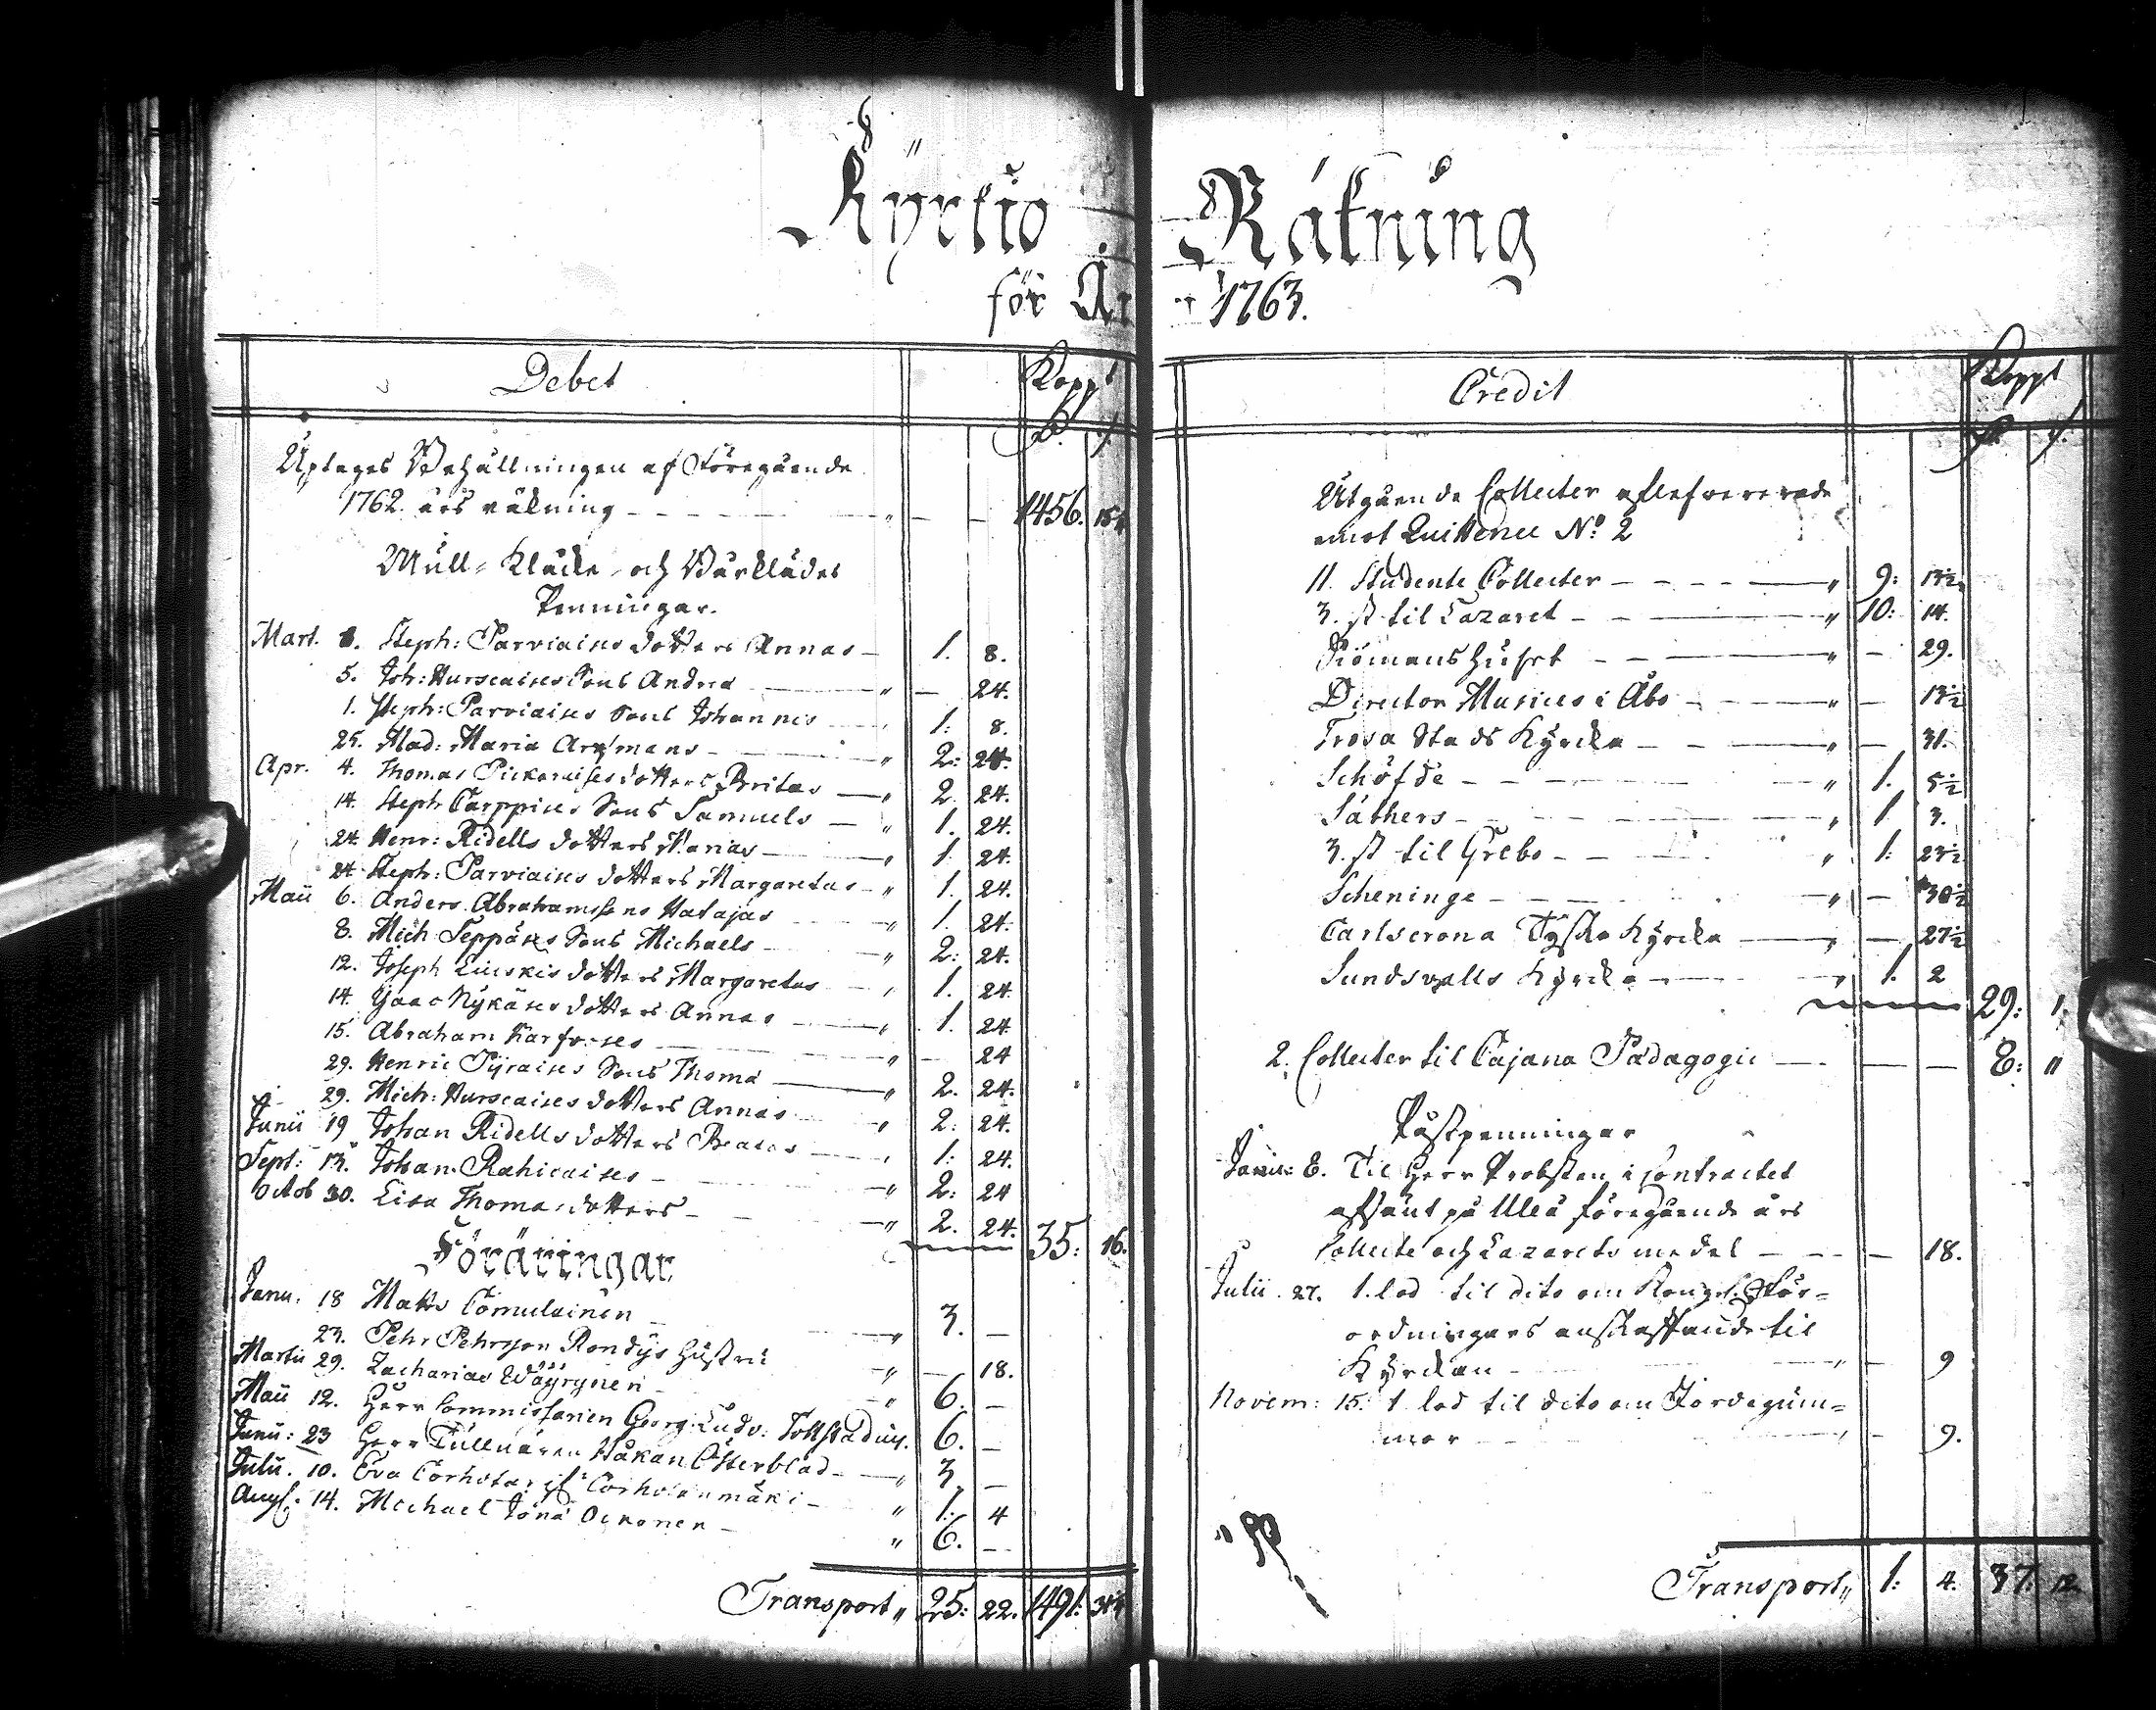 Kyrkio
för År
Debet
Kopp:t
Uptages Behållningen af Föregående
1762. års räkning 1456. 15
Mull- Kläde- och Bårklädes
Penningar.
Mart. 1. Steph: Parviaises dotters Annas 1. 8.
5. Joh: Hurscaises Sons Andreæ — 24.
1. Steph: Parviaises Sons Johannis 1: 8.
25. Mad: Maria 2: 24.
Apr. 4. Thomas dotters Britas 2. 24.
14. Steph Carppises Sons Samuels 1. 24.
24. Henr: Ridells dotters Marias 1. 24.
24. Steph: Parviaises dotters Margaretas 1. 24.
Maii 6. Anders Abrahamssons Hatajas 1. 24.
8. Mich: Seppäses Sons Michaels 2: 24.
12. Joseph dotters Margaretas 1. 24.
14. Isaac Nykäses dotters Annas 1. 24
15. Abraham — 24
29. Henric Pyraises Sons Thomæ 2. 24.
29. Mich: Hurscaises dotters Annas 2: 24.
Junii 19 Johan Ridells dotters Beatas 1: 24.
Sept: 13. Johan Rahicaises 2: 24
Octob 30. Lisa Thomædotters 2. 24. 35: 16.
Föräringar
Janu. 18 Matts Comulainen 3. —
23. Pehr Pehrsson Rondys hustru — 18.
Martii 29. Zacharias Wäyrynen 6. —
Maii 12. Herr Commissarien Georg: Ludv: Tollstadius. 6. —
Junii: 23 Herr Tullnären Håkan Österblad 3. —
Julii. 10. Eva Corhota: 1: 4
Augs: 14. Michael Jonæ Oikonen 6. —
Transport 25: 22. 1491: 31
Räkning
1763.
Credit
Kopp:t
Utgående Collecter aflefvererade
emot Quittence N:o 2
11. Studente Collecter 9: 13½
3. st til Lazaret 10: 14.
Siömanshuset — 29.
Director Musices i Åbo — 13½
Trosa Stads Kyrcka — 31.
Schöfde 1. 5½
Säthers 1 3.
3. st til Grebo 1: 23½
Scheninge — 30½
Carlscrona Tyska Kyrcka — 27½
Sundsvalls Kyrcka 1. 2
29: 1.
2. Collecter til Cajana Pædagogie 8: "
Postpenningar
Janu: 8. Til Herr Probsten i Contractet
afsänt på Uleå föregående års
Collecte och Lazarets medel — 18.
Julii. 27. 1. lod til dito om Kongl. För=
ordningars anskaffande til
Kyrckan — 9
Novem: 15. 1 lod til dito om Jordegum=
mor — 9.
Transport 1: 4. 37: 12.